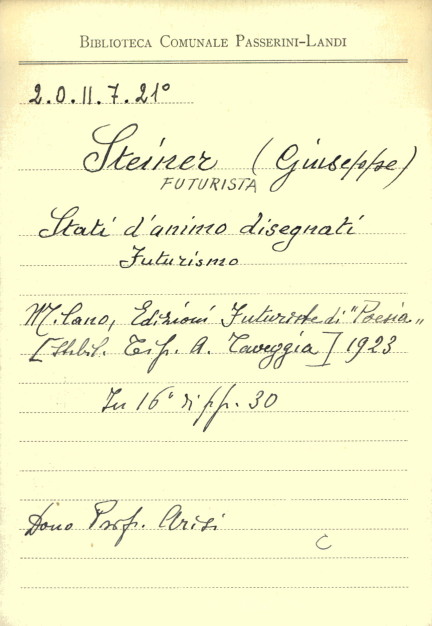 BIBLIOTECA COMUNALE PASSERINI-LANDI
2.0.II.7.21°
Steiner (Giuseppe)
FUTURISTA
Stati d'animo disegnati
Futurismo
Milano, Edizioni Futuriste di "Poesia"
[Stabil. Tip. A. Taveggia] 1923
In 16° di pp. 30
Dono Prof. Arisi
C